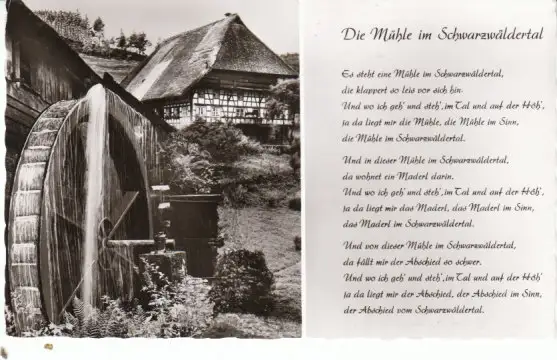 Die Mühle im Schwarzwäldertal
Es steht eine Mühle im Schwarzwäldertal,
die klappert so leis vor sich hin.
Und wo ich geh' und steh', im Tal und auf der Höh',
ja da liegt mir die Mühle, die Mühle im Sinn,
die Mühle im Schwarzwäldertal.
Und in dieser Mühle im Schwarzwäldertal,
da wohnet ein Maderl darin.
Und wo ich geh' und steh', im Tal und auf der Höh',
ja da liegt mir das Maderl, das Maderl im Sinn,
das Maderl im Schwarzwäldertal.
Und von dieser Mühle im Schwarzwäldertal,
da fällt mir der Abschied so schwer.
Und wo ich geh' und steh', im Tal und auf der Höh'
ja da liegt mir der Abschied, der Abschied im Sinn,
der Abschied vom Schwarzwäldertal.